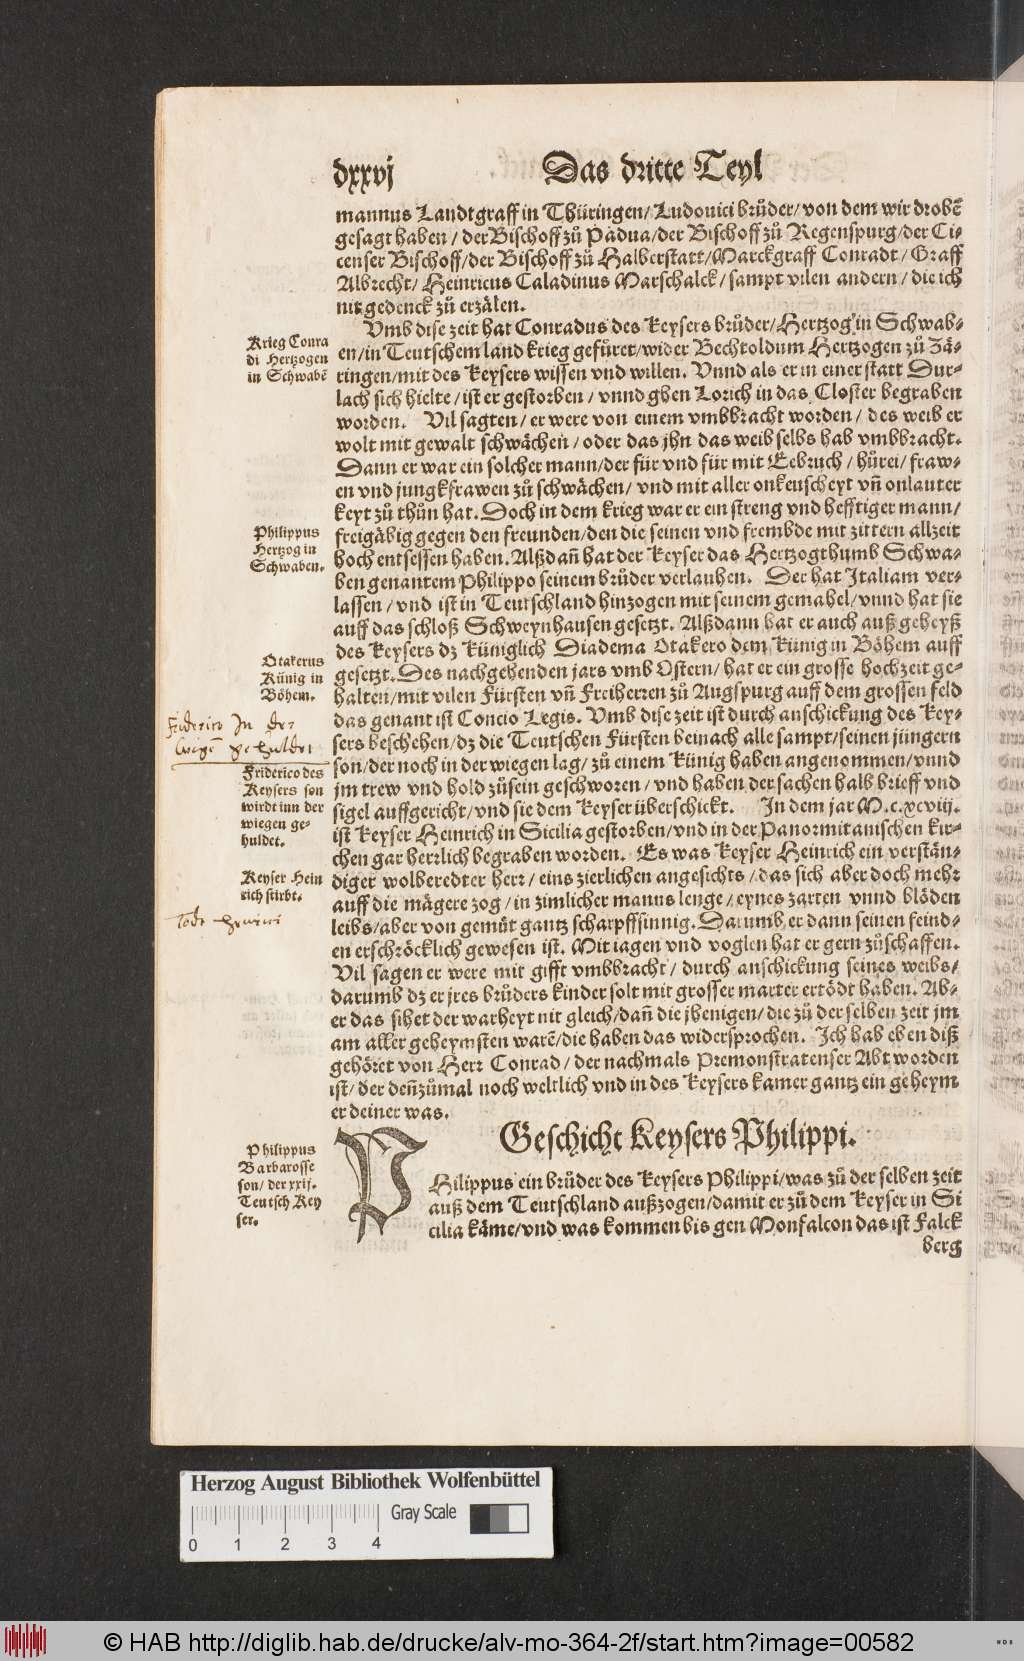 dxxvj
Das dritte Teyl
mannus Landtgraff in Thüringen/ Ludouici brůder/ von dem wir drobē
gesagt haben/ der Bischoff zů Padua/ der Bischoff zů Regenspurg/ der Ci-
censer Bischoff/ der Bischoff zů Halberstatt/ Marckgraff Conradt/ Graff
Albrecht/ Heinricus Caladinus Marschalck/ sampt vilen andern/ die ich
nit gedenck zů erzälen.
Krieg Conra
di Hertzogen
in Schwabē
Vmb dise zeit hat Conradus des Keysers brůder/ Hertzog in Schwab-
en/ in Teutschem land krieg gefůret/ wider Bechtoldum Hertzogen zů Zä-
ringen/ mit des Keysers wissen vnd willen. Vnnd als er in einer statt Dur-
lach sich hielte/ ist er gestorben/ vnnd gben Lorich in das Closter begraben
worden. Vil sagten/ er were von einem vmbbracht worden/ des weib er
wolt mit gewalt schwächen/ oder das jhn das weib selbs hab vmbbracht.
Dann er war ein solcher mann/ der für vnd für mit Eebruch/ hůrei/ fraw-
en vnd jungkfrawen zů schwächen/ vnd mit aller onkeuscheyt vn̄ onlauter
keyt zů thůn hat. Doch in dem krieg war er ein streng vnd hefftiger mann/
Philippus
Hertzog in
Schwaben.
freigäbig gegen den freunden/ den die seinen vnd frembde mit zittern allzeit
hoch entsessen haben. Alßdan̄ hat der Keyser das Hertzogthumb Schwa-
ben genantem Philippo seinem brůder verlauhen. Der hat Italiam ver-
lassen/ vnd ist in Teutschland hinzogen mit seinem gemahel/ vnnd hat sie
auff das schloß Schweynhausen gesetzt. Alßdann hat er auch auß geheyß
des Keysers dz Küniglich Diadema Otakero dem Künig in Böhem auff
Otakerus
Künig in
Böhem.
gesetzt. Des nachgehenden jars vmb Ostern/ hat er ein grosse hochzeit ge-
halten/ mit vilen Fürsten vn̄ Freiherren zů Augspurg auff dem grossen feld
das genant ist Concio Legis. Vmb dise zeit ist durch anschickung des Key-
sers beschehen/ dz die Teutschen Fürsten beinach alle sampt/ seinen jüngern
son/ der noch in der wiegen lag/ zů einem Künig haben angenommen/ vnnd
jm trew vnd hold zůsein geschworen/ vnd haben der sachen halb brieff vnd
sigel auffgericht/ vnd sie dem Keyser überschickt. In dem jar M.c.xcviij.
Friderico In der
wigē gehuldet
Friderico des
Keysers son
wirdt inn der
wiegen ge-
huldet.
ist Keyser Heinrich in Sicilia gestorben/ vnd in der Panormitanischen kir-
chen gar herrlich begraben worden. Es was Keyser Heinrich ein verstän-
Keyser Hein
rich stirbt.
diger wolberedter herr/ eins zierlichen angesichts/ das sich aber doch mehr
auff die mägere zog/ in zimlicher manns lenge/ eynes zarten vnnd blöden
leibs/ aber von gemüt gantz scharpffsinnig. Darumb er dann seinen feind-
en erschröcklich gewesen ist. Mit iagen vnd voglen hat er gern zůschaffen.
Vil sagen er were mit gifft vmbbracht/ durch anschickung seines weibs/
darumb dz er jres brůders kinder solt mit grosser marter ertödt haben. Ab-
er das sihet der warheyt nit gleich/ dan̄ die jhenigen/ die zů der selben zeit jm
am aller geheymsten warē/ die haben das widersprochen. Ich hab eben diß
gehöret von Herr Conrad/ der nachmals Premonstratenser Abt worden
ist/ der den̄zůmal noch weltlich vnd in des Keysers kamer gantz ein geheym
er deiner was.
Geschicht Keysers Philippi.
Philippus
Barbarosse
son/ der xxij.
Teutsch Key
ser.
PHilippus ein brůder des Keysers Philippi/ was zů der selben zeit
auß dem Teutschland außzogen/ damit er zů dem Keyser in Si
cilia käme/ vnd was kommen bis gen Monfalcon das ist Falck
berg
Herzog August Bibliothek Wolfenbüttel
Gray Scale
0 1 2 3 4
© HAB http://diglib.hab.de/drucke/alv-mo-364-2f/start.htm?image=00582